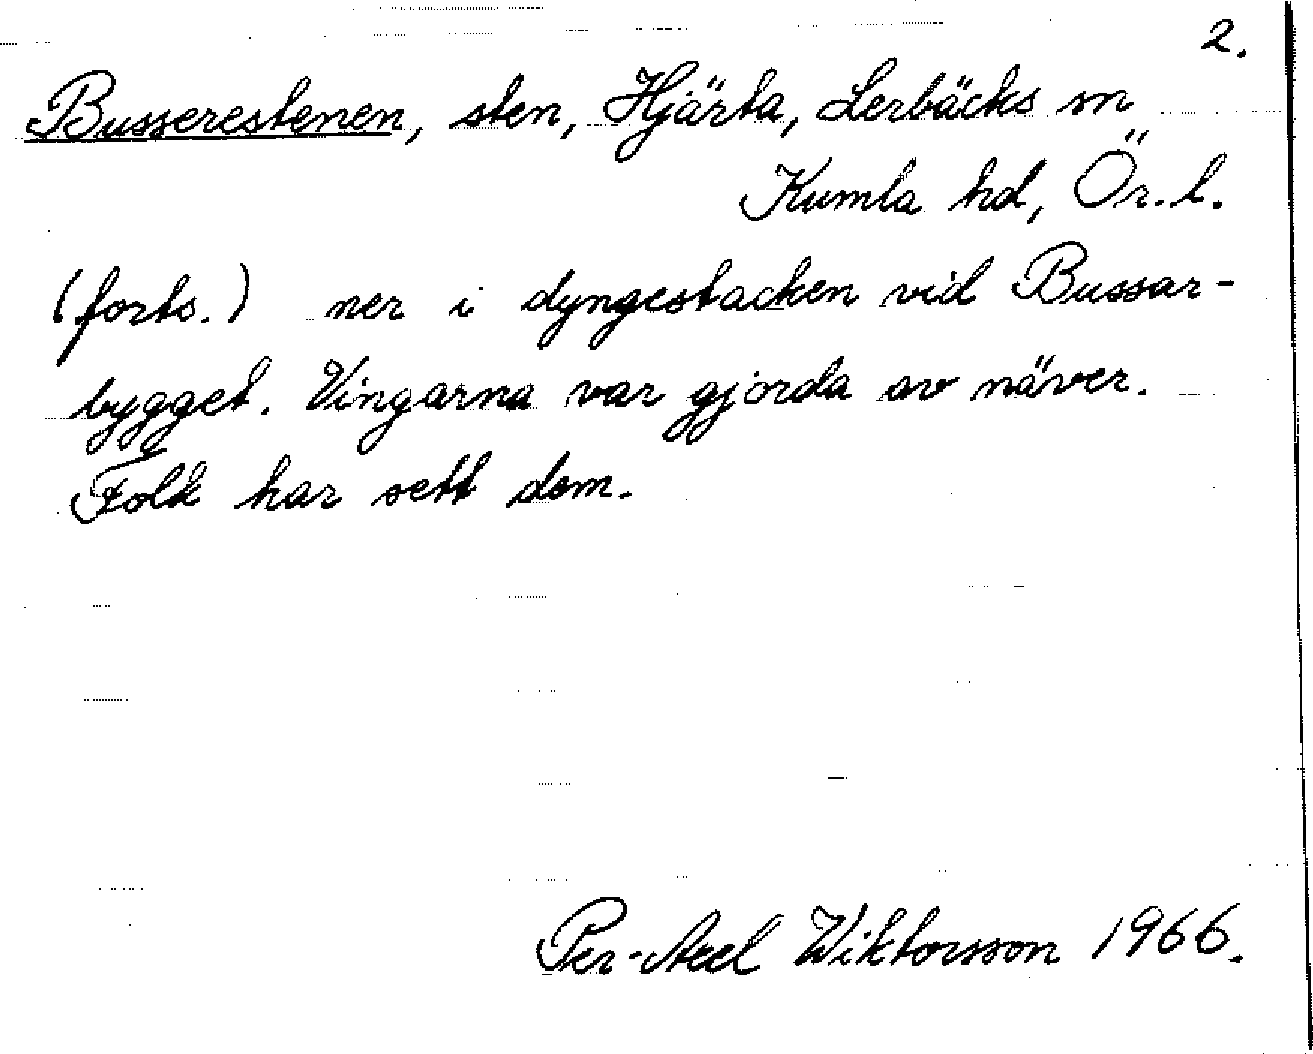 2.
Busserestenen, sten, Hjärta, Lerbäcks sn
Kumla hd, Ör. l.
(forts.) ner i dyngestacken vid Bussar-
bygget. Vingarna var gjorda av näver.
Folk har sett dom.
Per-Axel Wiktorsson 1966.